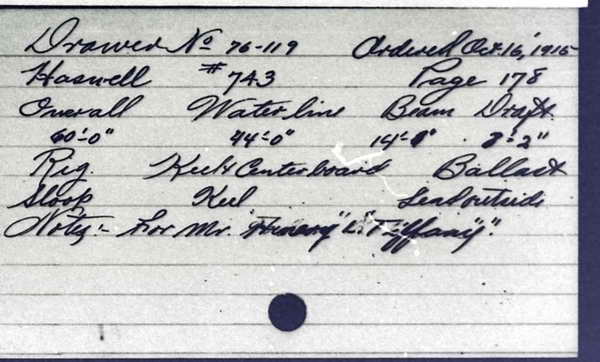 Drawer No 76-119 Ordered Oct. 16, 1915
Haswell #743 Page 178
Overall Water line Beam Draft.
60'-0" 44'-0" 14'- 8'-2"
Rig. Keel & Centerboard Ballast
Sloop Keel Lead outside
Notes:- For Mr. L. Tiffany".